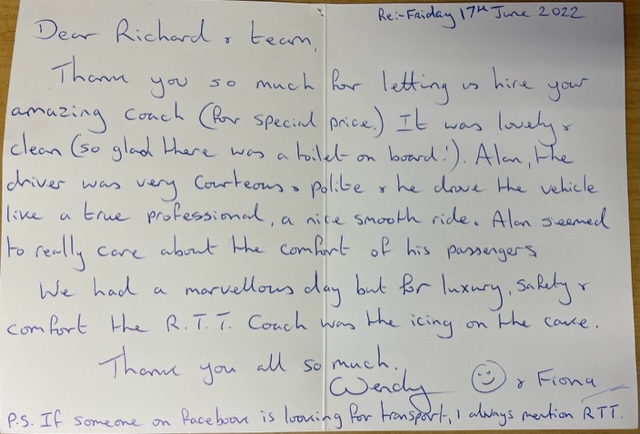 Re:- Friday 17th June 2022
Dear Richard & team,
Thank you so much for letting us hire your
amazing coach (for special price.) It was lovely &
clean (so glad there was a toilet on board!). Alan, the
driver was very courteous & polite & he drove the vehicle
like a true professional, a nice smooth ride. Alan seemed
to really care about the comfort of his passengers
We had a marvellous day but for luxury, safety &
comfort the R.T.T. Coach was the icing on the cake.
Thank you all so much.
Wendy & Fiona
P.S. If someone on Facebook is looking for transport, I always mention RTT.